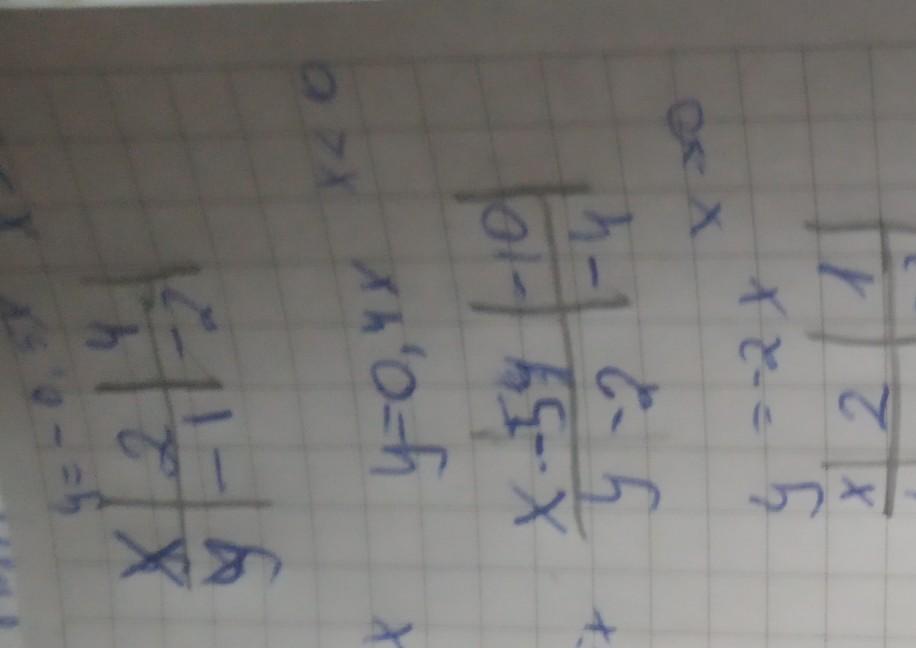 y = -0,5x
x 2 4
y -1 -2
x < 0
y=0,4x
x -5 -10
y -2 -4
y = -2x
x 2 1